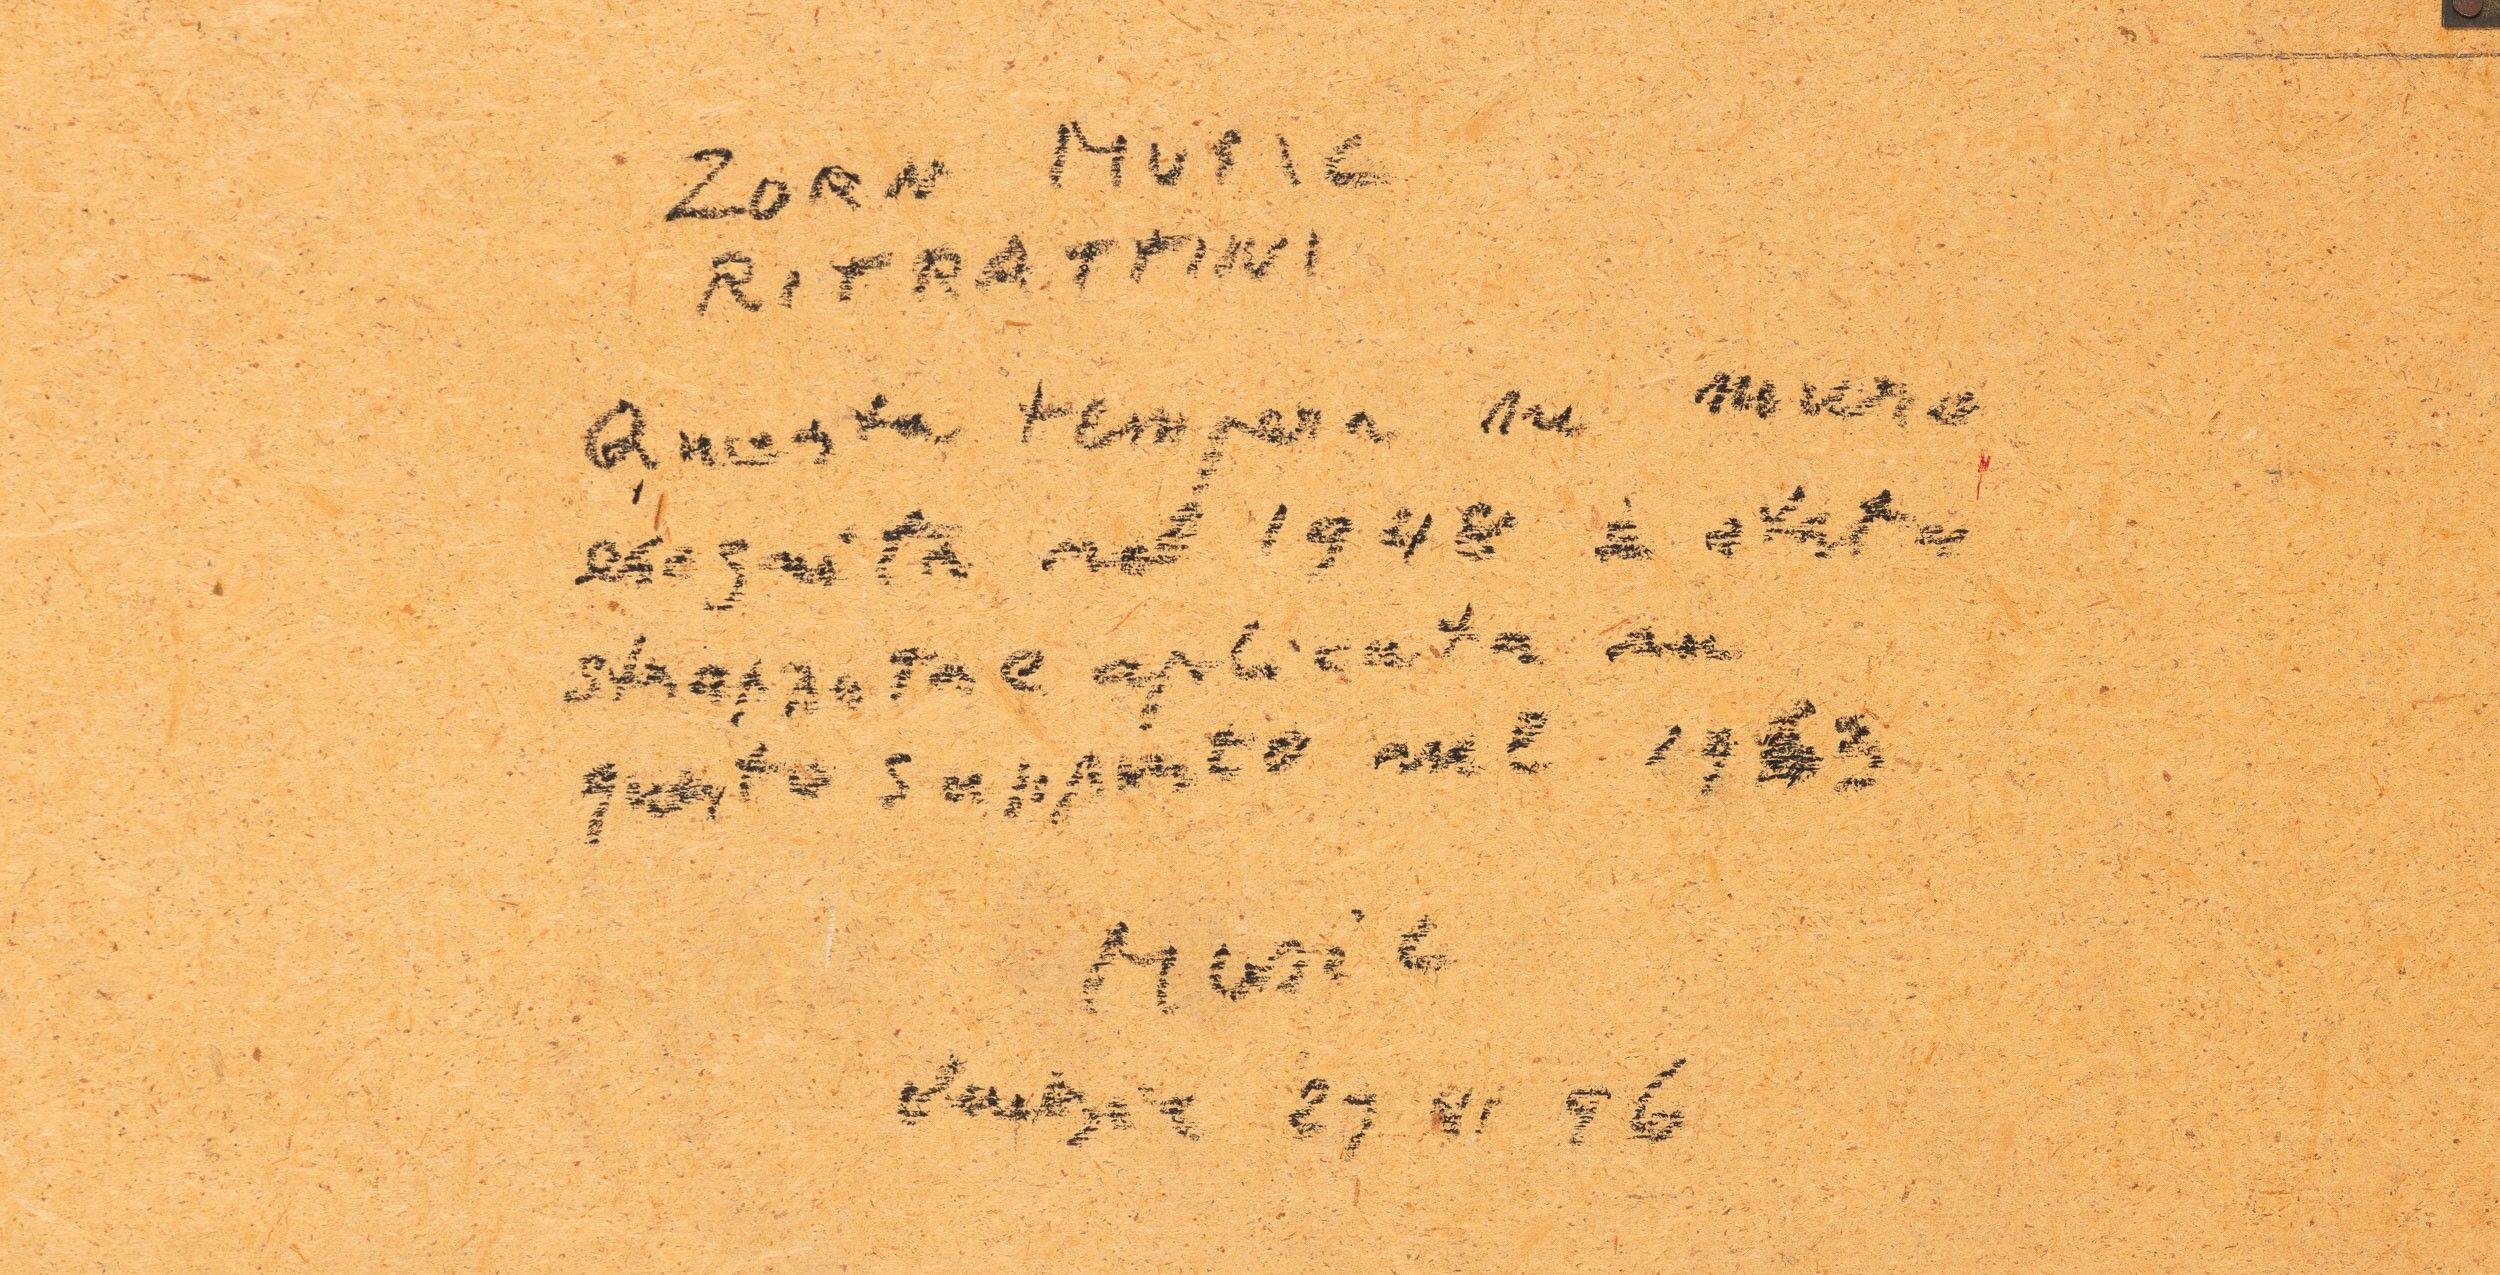 ZORN MUSIC
RITRATTINI
Questa tempera su muro
eseguita nel 1948 è stata
strappata e aplicata su
questo supporto nel 1963
Music
27 XI 96